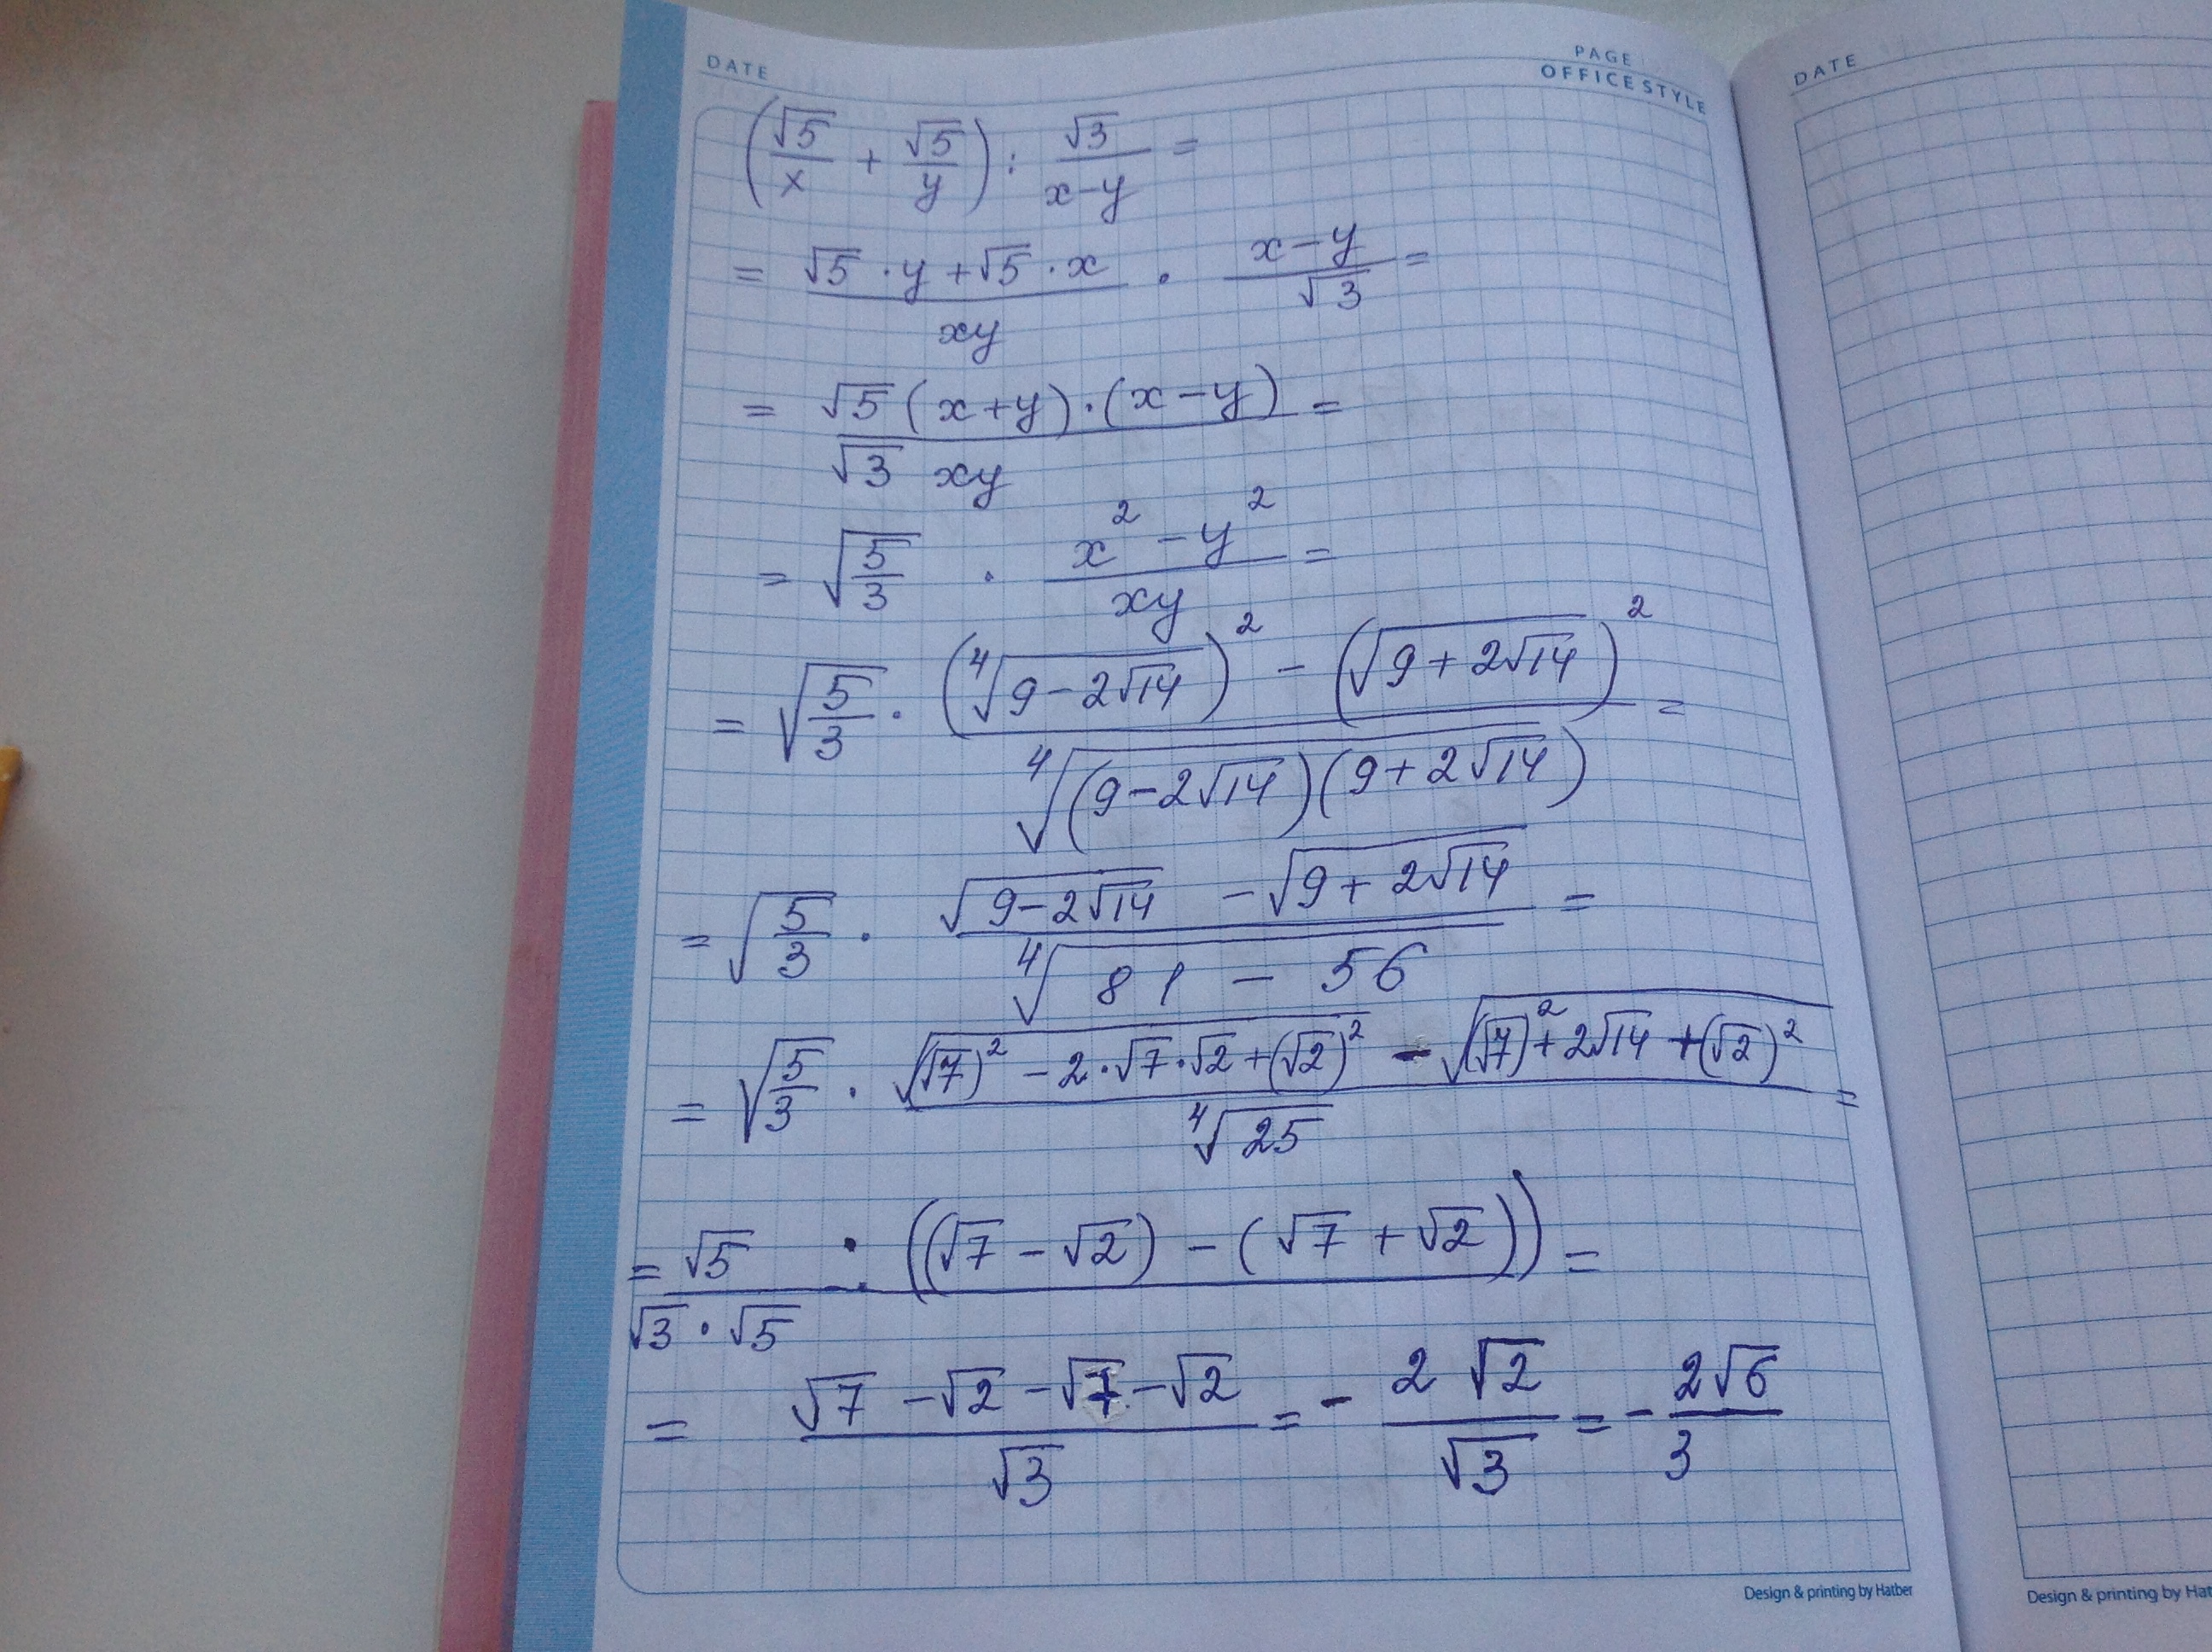 DATE
PAGE
OFFICE STYLE
DATE
(√5/x + √5/y) : √3/(x-y) =
= (√5 · y + √5 · x)/(xy) · (x-y)/√3 =
= (√5 (x+y) · (x-y))/(√3 xy) =
= √(5/3) · (x² - y²)/(xy) =
= √(5/3) · ((⁴√(9-2√14))² - (√(9+2√14))²)/(⁴√((9-2√14)(9+2√14))) =
= √(5/3) · (√(9-2√14) - √(9+2√14))/(⁴√(81 - 56)) =
= √(5/3) · (√((√7)² - 2·√7·√2 + (√2)²) - √((√7)² + 2√14 + (√2)²))/(⁴√25) =
= (√5 · ((√7 - √2) - (√7 + √2)))/(√3 · √5) =
= (√7 - √2 - √7 - √2)/√3 = - (2 √2)/√3 = - (2√6)/3
Design & printing by Hatber
Design & printing by Hat